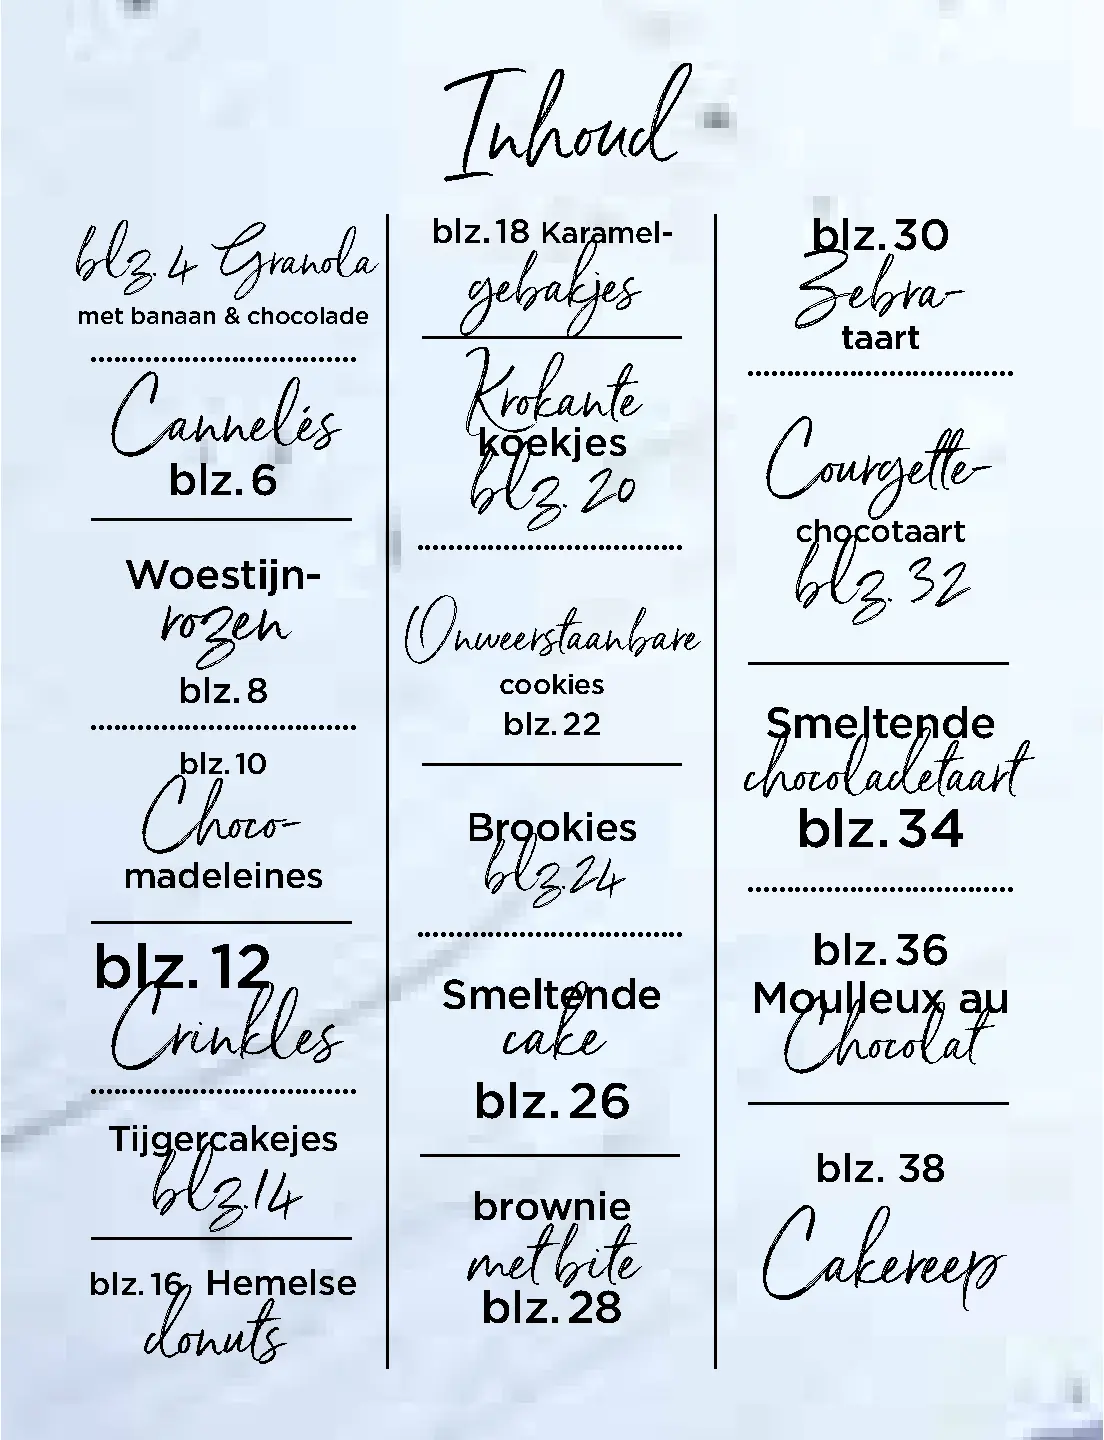 Inhoud
blz. 4 Granola
met banaan & chocolade
Cannelés
blz. 6
Woestijn-
rozen
blz. 8
blz. 10
Choco-
madeleines
blz. 12
Crinkles
Tijgercakejes
blz. 14
blz. 16 Hemelse
donuts
blz. 18 Karamel-
gebakjes
Krokante
koekjes
blz. 20
Onweerstaanbare
cookies
blz. 22
Brookies
blz. 24
Smeltende
cake
blz. 26
brownie
met bite
blz. 28
blz. 30
Zebra-
taart
Courgette-
chocotaart
blz. 32
Smeltende
chocoladetaart
blz. 34
blz. 36
Moulleux au
Chocolat
blz. 38
Cakereep